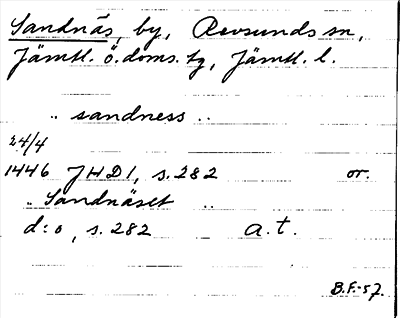 Sandnäs, by, Revsunds sn,
Jämtl. ö. doms. tg, Jämtl. l.
.. sandness ..
24/4
1446 JHD1, s. 282 or.
.. Sandnäset ..
d:o, s. 282 a.t.
B.F.-57.